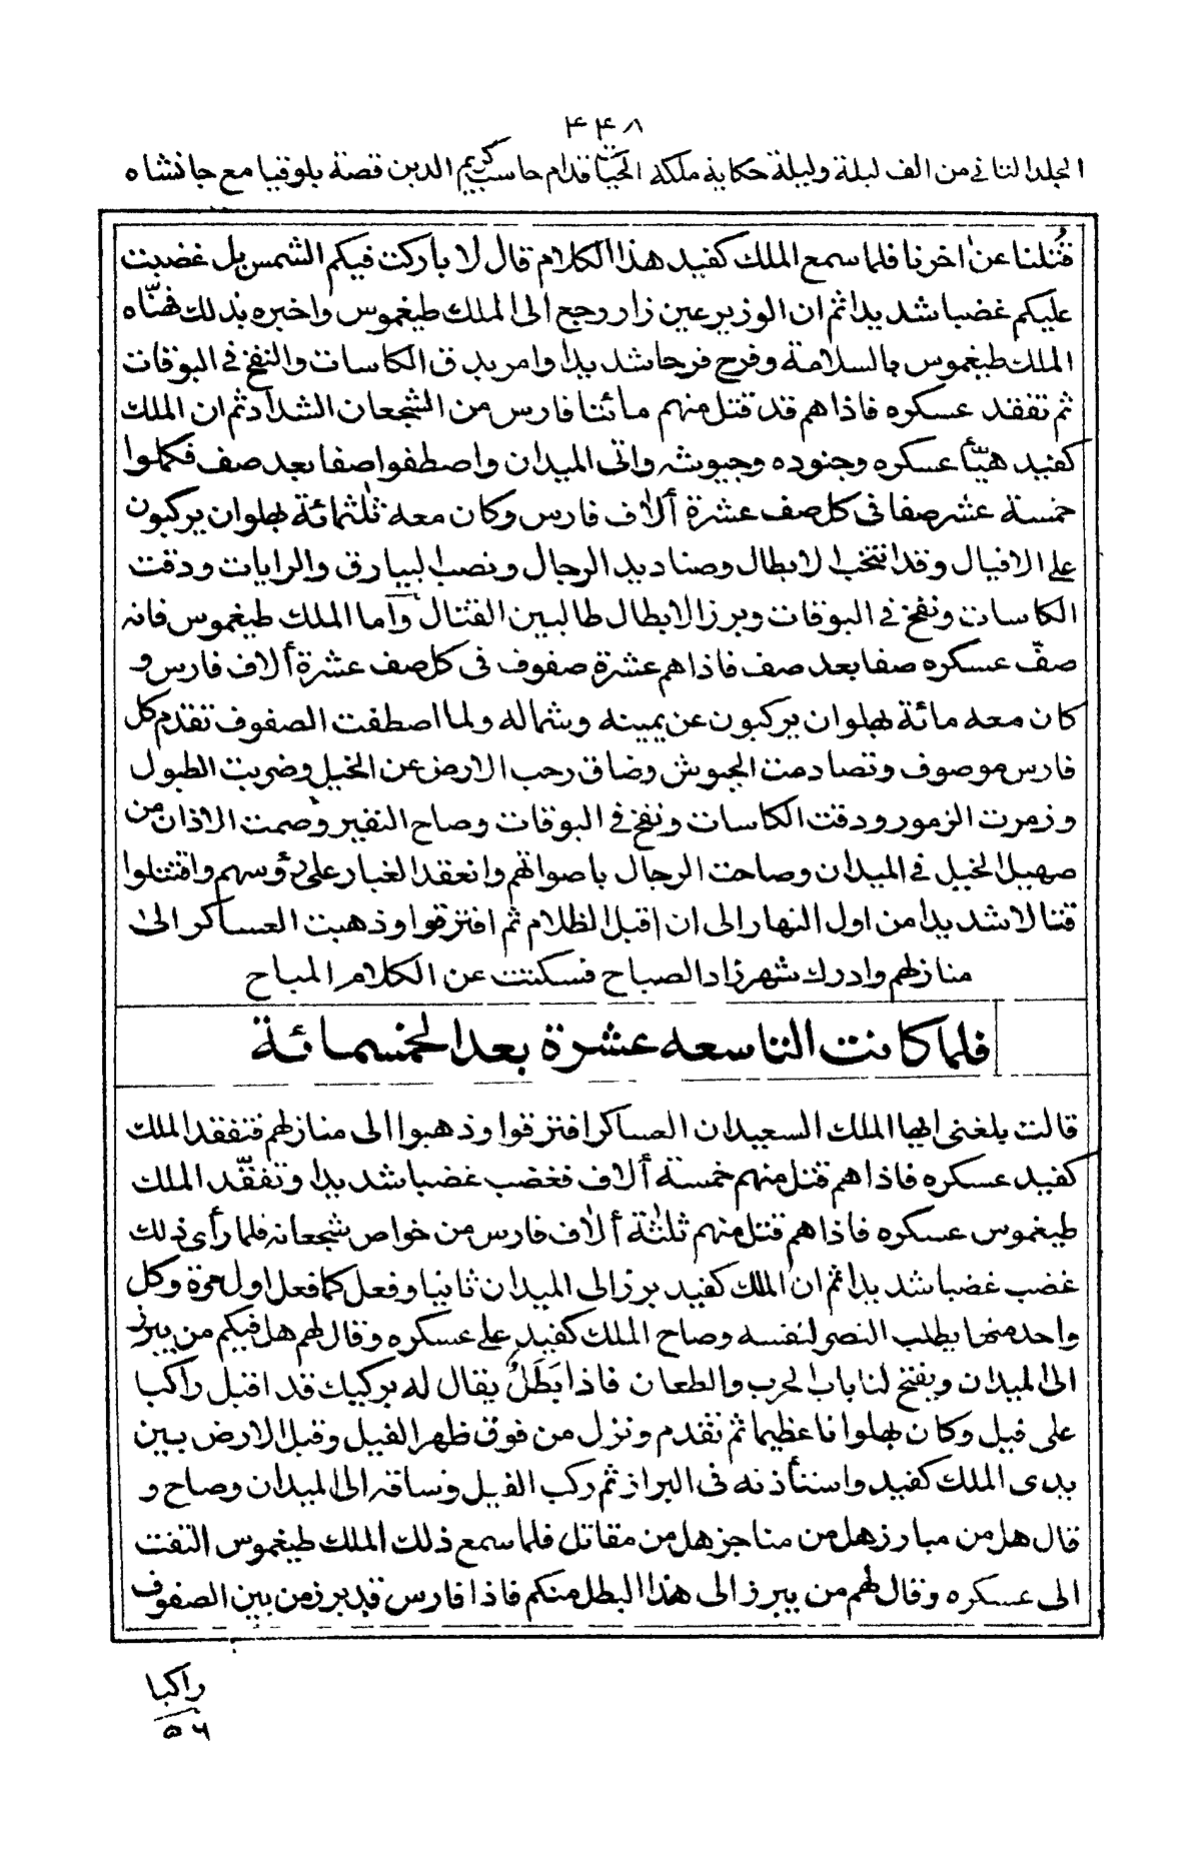 ۴۴۸
المجلد الثاني من الف ليلة وليلة حكاية ملكة الحيات قدام حاسب كريم الدين قصة بلوقيا مع جانشاه
قُتلنا عن اٰخرنا فلما سمع الملك كفيد هذا الكلام قال لا باركت فيكم الشمس بل غضبت
عليكم غضبا شديدا ثم ان الوزير عين زار رجع الى الملك طيغموس واخبره بذلك فهنّاه
الملك طيغموس بالسلامة وفرح فرحا شديدا وامر بدق الكاسات والنفخ في البوقات
ثم تفقد عسكره فاذا هم قد قتل منهم مائتا فارس من الشجعان الشداد ثم ان الملك
كفيد هيّأ عسكره وجنوده وجيوشه واتى الميدان واصطفوا صفا بعد صف فكملوا
خمسة عشر صفا في كل صف عشرة ألاف فارس وكان معه ثلثمائة بهلوان يركبون
على الافيال وقد انتخب الابطال وصناديد الرجال ونصب البيارق والرايات ودقت
الكاسات ونفخ في البوقات وبرز الابطال طالبين القتال وأما الملك طيغموس فانه
صفّ عسكره صفا بعد صف فاذا هم عشرة صفوف في كل صف عشرة ألاف فارس و
كان معه مائة بهلوان يركبون عن يمينه وشماله ولما اصطفت الصفوف تقدم كل
فارس موصوف وتصادمت الجيوش وضاق رحب الارض عن الخيل وضربت الطبول
وزمرت الزمور ودقت الكاسات ونفخ في البوقات وصاح النفير وصمت الاذان من
صهيل الخيل في الميدان وصاحت الرجال باصواتهم وانعقد الغبار على رؤوسهم واقتتلوا
قتالا شديدا من اول النهار الى ان اقبل الظلام ثم افترقوا وذهبت العساكر الى
منازلهم وادرك شهرزاد الصباح فسكتت عن الكلام المباح
فلما كانت التاسعه عشرة بعد الخمسمائة
قالت بلغنى ايها الملك السعيد ان العساكر افترقوا وذهبوا الى منازلهم فتفقد الملك
كفيد عسكره فاذا هم قتل منهم خمسة ألاف فغضب غضبا شديدا وتفقّد الملك
طيغموس عسكره فاذا هم قتل منهم ثلثة ألاف فارس من خواص شجعانه فلما رأى ذلك
غضب غضبا شديدا ثم ان الملك كفيد برز الى الميدان ثانيا وفعل كما فعل اول مرة وكل
واحد منهما يطلب النصر لنفسه وصاح الملك كفيد على عسكره وقال لهم هل فيكم من يبرز
الى الميدان ويفتح لنا باب الحرب والطعان فاذا بَطَلٌ يقال له بركيك قد اقبل راكبا
على فيل وكان بهلوانا عظيما ثم تقدم ونزل من فوق ظهر الفيل وقبل الارض بين
يدى الملك كفيد واستأذنه فى البراز ثم ركب الفيل وساقه الى الميدان وصاح و
قال هل من مبارز هل من مناجز هل من مقاتل فلما سمع ذلك الملك طيغموس التفت
الى عسكره وقال لهم من يبرز الى هذا البطل منكم فاذا فارس قد برز من بين الصفوف
راكبا
۵۶